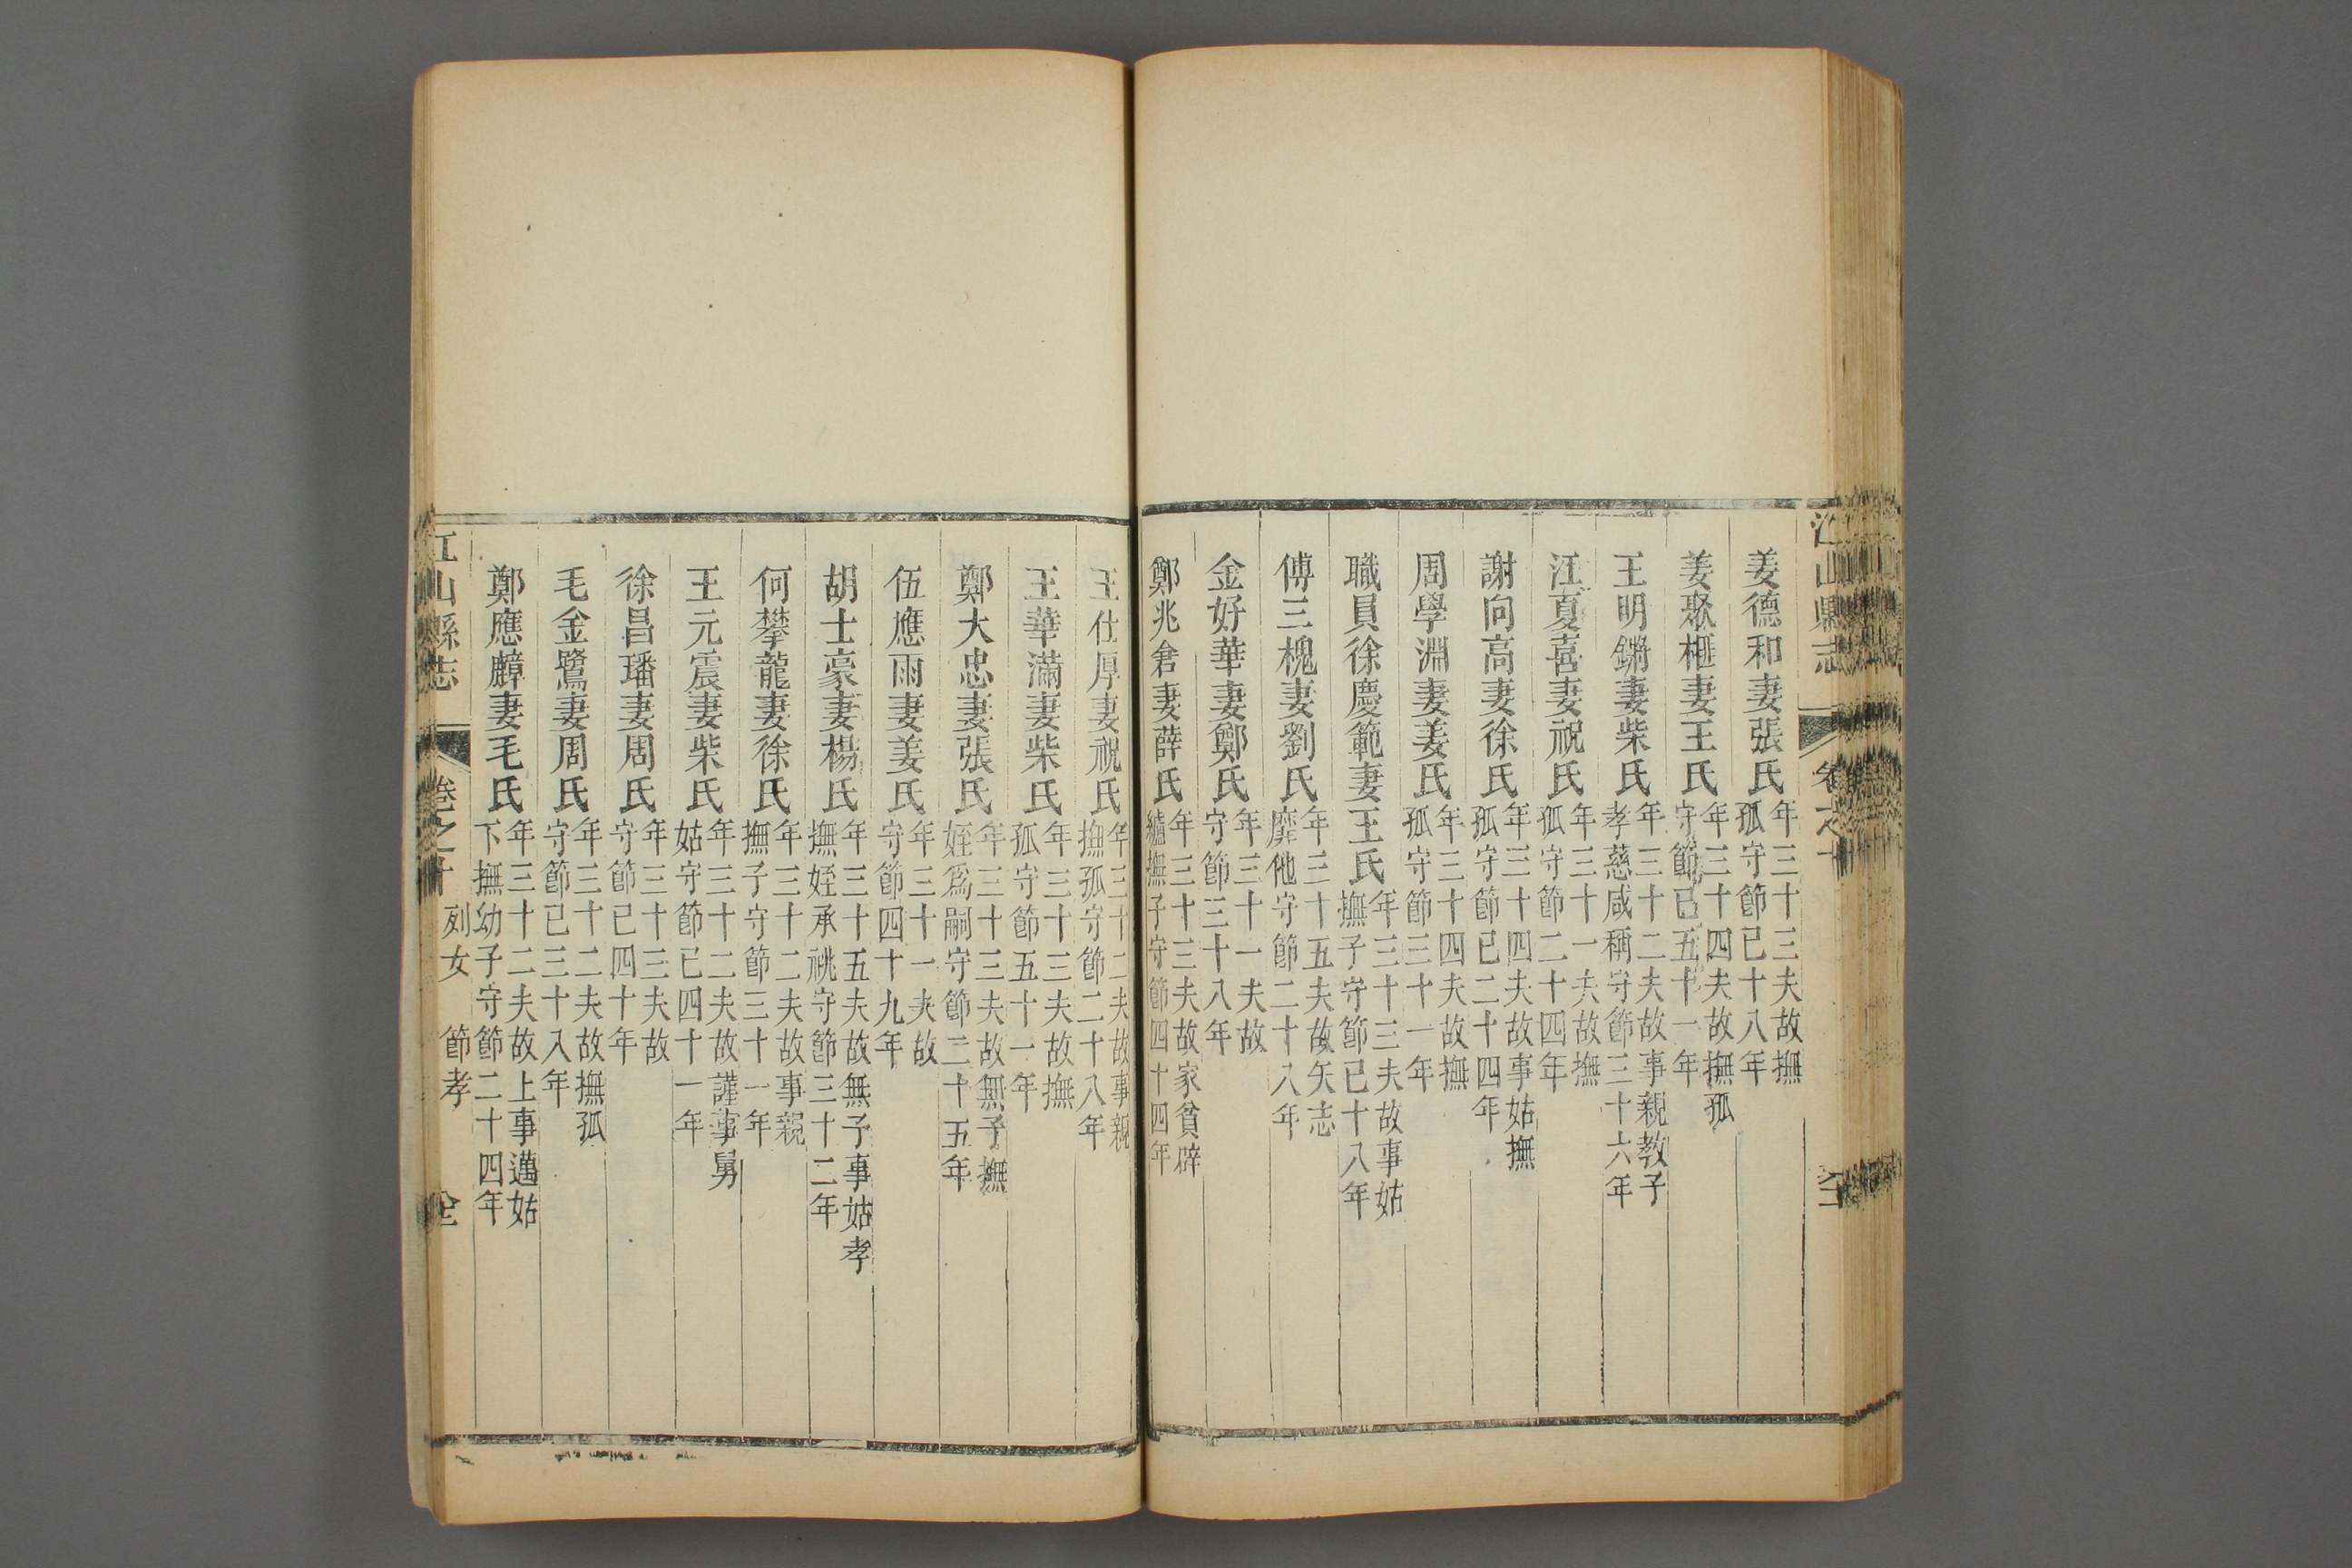 江山縣志
卷之十
姜德和妻張氏 年三十三夫故撫孤守節已十八年
姜聚榧妻王氏 年三十四夫故撫孤守節已五十一年
王明鏘妻柴氏 年三十二夫故事親教子孝慈咸稱守節三十六年
汪夏喜妻祝氏 年三十一夫故撫孤守節二十四年
謝向高妻徐氏 年三十四夫故事姑撫孤守節已二十四年
周學淵妻姜氏 年三十四夫故撫孤守節三十一年
職員徐慶範妻王氏 年三十三夫故事姑撫子守節已十八年
傅三槐妻劉氏 年三十五夫故矢志靡他守節二十八年
金好華妻鄭氏 年三十一夫故守節三十八年
鄭兆倉妻薛氏 年三十三夫故家貧辟纑撫子守節四十四年
王仕厚妻祝氏 年三十二夫故事親撫孤守節二十八年
王華滿妻柴氏 年三十三夫故撫孤守節五十一年
鄭大忠妻張氏 年三十三夫故無子撫姪爲嗣守節二十五年
伍應雨妻姜氏 年三十一夫故守節四十九年
胡士豪妻楊氏 年三十五夫故無子事姑孝撫姪承祧守節三十二年
何攀龍妻徐氏 年三十二夫故事親撫子守節三十一年
王元震妻柴氏 年三十二夫故謹事舅姑守節已四十一年
徐昌璠妻周氏 年三十三夫故守節已四十年
毛金鷺妻周氏 年三十二夫故撫孤守節已三十八年
鄭應麟妻毛氏 年三十二夫故上事邁姑下撫幼子守節二十四年
江山縣志
卷之十 列女 節孝